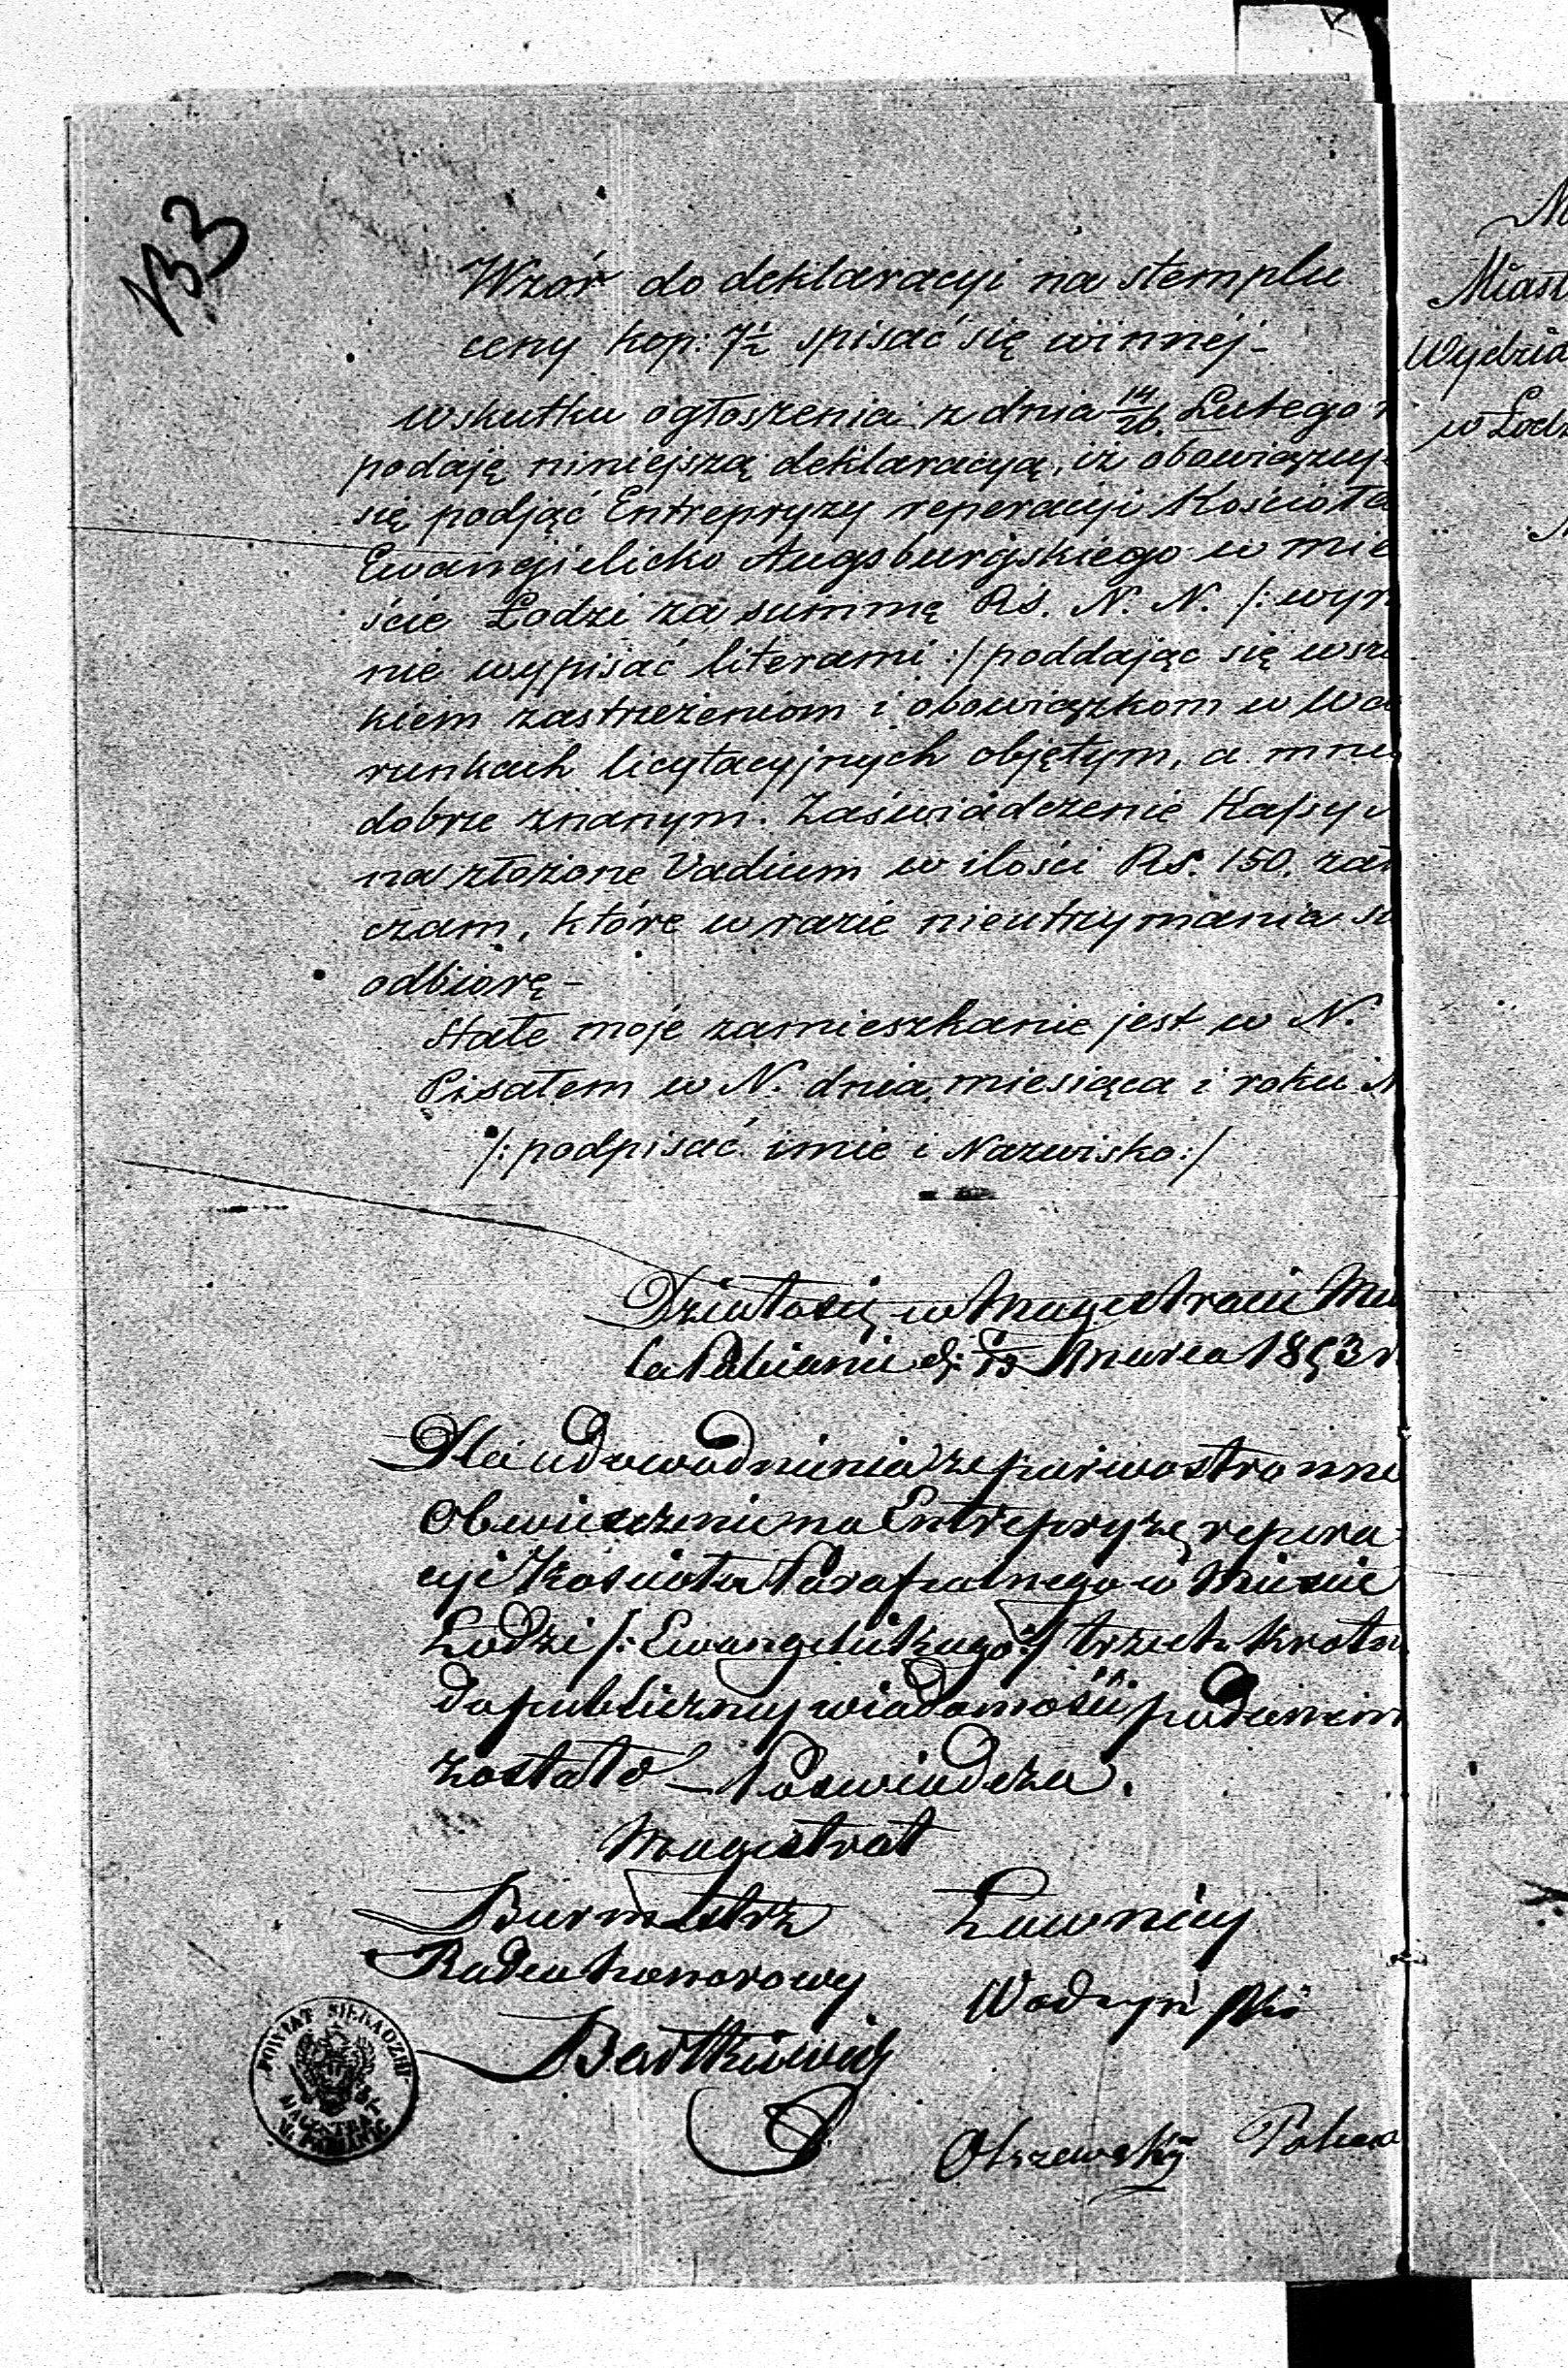 133
Wzór do deklaracyi na stemplu
ceny kop: 7½ spisać się winnéj –
Wskutku ogłoszenia z dnia 14/26 Lutego
podaję niniejszą deklaracyą, iż obowiązuję
się podjąć Entrepryzy reperacyi Kościoła
Ewangielicko Augsburgskiego w mie
ście Łodzi za summę RS. N. N. /: wyr
nie wypisać literami :/ poddając się wsz
kiem zastrzeżeniom i obowiązkom w Wa
runkach licytacyjnych objętym, a mnie
dobrze znanym. Zaświadczenie Kassy
na złożone Vadium w ilości RS. 150. zał
czam, które w razie nieutrzymania się
odbiorę –
Stałe moje zamieszkanie jest w N.
Pisałem w N. dnia, miesiąca i roku N
/: podpisać imie i Nazwisko :/
Działo się w Magistracie Mia
sta Pabianic d: Marca 1853 r
Dla udowodnienia że powiestronne
Obwieszczenie na Entrepryzę repera
cyi Kościoła Parafialnego w Miescie
Łodzi /: Ewangelickiego :/ trzech krotn
do publicznej wiadomości podanem
zostało – Poswiadcza.
Magistrat
Burmistrz Ławnicy
Radca honorowy
Wodzyński
Bartkiewicz
Olszewski
POWIAT SIERADZKI
MAGISTRAT
M. PABIANIC
Miast
Wydzia
w Łodz